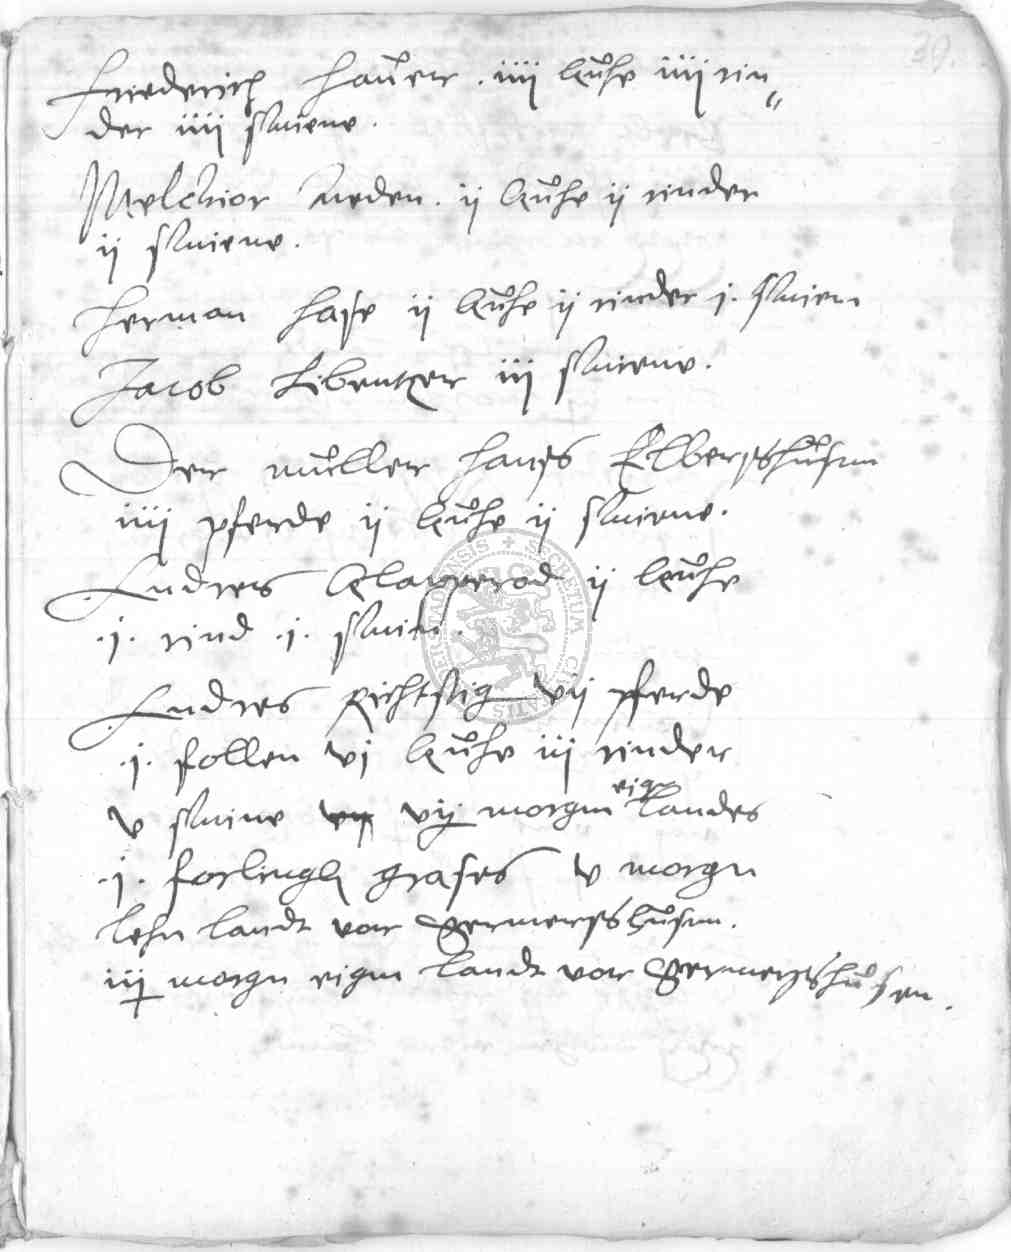 39.
Friederich Hauer . iiij kuhe iiij rin„
der iiij swiene.
Melchior Aeden. ij kuhe ij rinder
ij swiene.
Herman Hase ij kuhe ij rinder j. swien
Jacob Libentzer iij swiene.
Der muller Hans Elbershusen
iiij pferde ij kuhe ij swiene.
Endres Klapperod ij kuhe
.j. rind .j. swien.
Endres Richtstig vij pferde
.j. follen vj kuhe iij rinder
v swine vij morgen eigen landes
.j. forlingk grases v morgen
lehn landt vor Germershusen.
iij morgen eigen landt vor Germershusen.
SECRETUM CIVITATIS